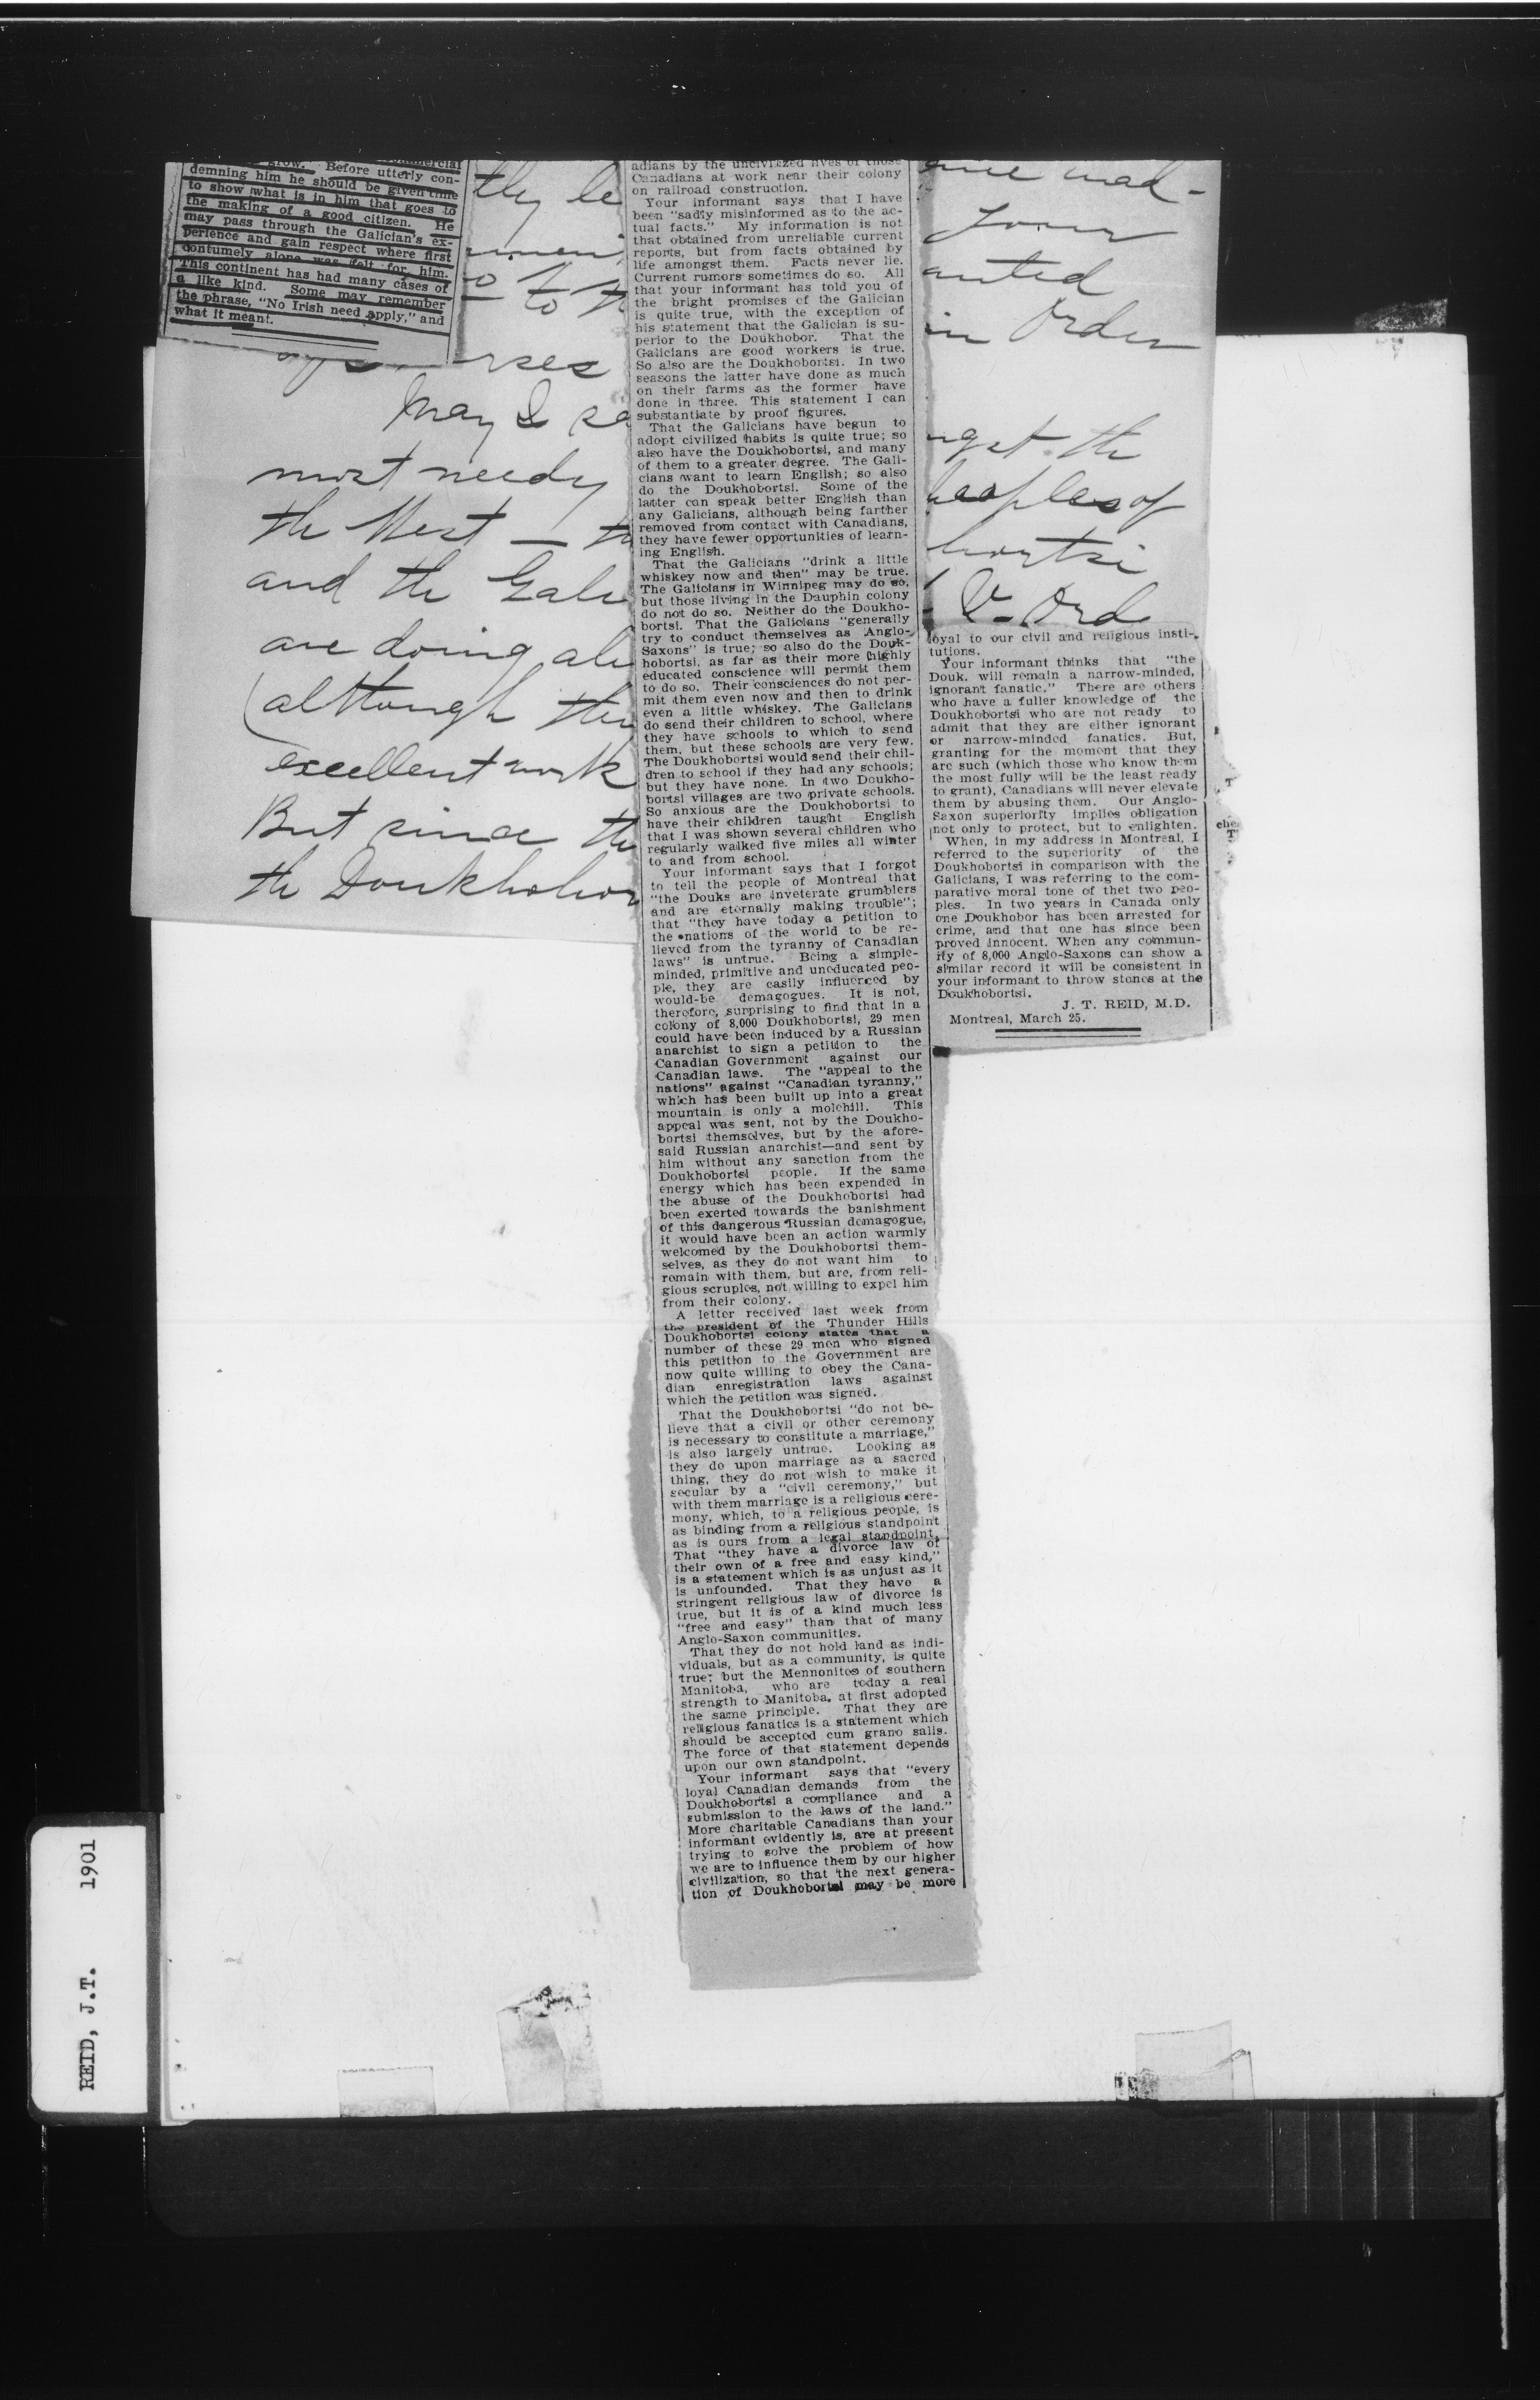 demning him he should be given time
to show what is in him that goes to
the making of a good citizen. He
may pass through the Galician's ex-
perience and gain respect where first
contumely alone was felt for him.
This continent has had many cases of
a like kind. Some may remember
the phrase, "No Irish need apply," and
what it meant.
they be
to th
rses
May I sa
most needy
the West — th
and the Gali
are doing
(although they
excellent work
But since the
the Doukhobor
adians by the uncivilized lives of those
Canadians at work near their colony
on railroad construction.
Your informant says that I have
been "sadly misinformed as to the ac-
tual facts." My information is not
that obtained from unreliable current
reports, but from facts obtained by
life amongst them. Facts never lie.
Current rumors sometimes do so. All
that your informant has told you of
the bright promises of the Galician
is quite true, with the exception of
his statement that the Galician is su-
perior to the Doukhobor. That the
Galicians are good workers is true.
So also are the Doukhobortsi. In two
seasons the latter have done as much
on their farms as the former have
done in three. This statement I can
substantiate by proof figures.
That the Galicians have begun to
adopt civilized habits is quite true; so
also have the Doukhobortsi, and many
of them to a greater degree. The Gali-
cians want to learn English; so also
do the Doukhobortsi. Some of the
latter can speak better English than
any Galicians, although being farther
removed from contact with Canadians,
they have fewer opportunities of learn-
ing English.
That the Galicians "drink a little
whiskey now and then" may be true.
The Galicians in Winnipeg may do so,
but those living in the Dauphin colony
do not do so. Neither do the Doukho-
bortsi. That the Galicians "generally
try to conduct themselves as Anglo-
Saxons" is true; so also do the Douk-
hobortsi, as far as their more highly
educated conscience will permit them
to do so. Their consciences do not per-
mit them even now and then to drink
even a little whiskey. The Galicians
do send their children to school, where
they have schools to which to send
them, but these schools are very few.
The Doukhobortsi would send their chil-
dren to school if they had any schools;
but they have none. In two Doukho-
bortsi villages are two private schools.
So anxious are the Doukhobortsi to
have their children taught English
that I was shown several children who
regularly walked five miles all winter
to and from school.
Your informant says that I forgot
to tell the people of Montreal that
"the Douks are inveterate grumblers
and are eternally making trouble";
that "they have today a petition to
the nations of the world to be re-
lieved from the tyranny of Canadian
laws" is untrue. Being a simple-
minded, primitive and uneducated peo-
ple, they are easily influenced by
would-be demagogues. It is not,
therefore, surprising to find that in a
colony of 8,000 Doukhobortsi, 29 men
could have been induced by a Russian
anarchist to sign a petition to the
Canadian Government against our
Canadian laws. The "appeal to the
nations" against "Canadian tyranny,"
which has been built up into a great
mountain is only a molehill. This
appeal was sent, not by the Doukho-
bortsi themselves, but by the afore-
said Russian anarchist—and sent by
him without any sanction from the
Doukhobortsi people. If the same
energy which has been expended in
the abuse of the Doukhobortsi had
been exerted towards the banishment
of this dangerous Russian demagogue,
it would have been an action warmly
welcomed by the Doukhobortsi them-
selves, as they do not want him to
remain with them, but are, from reli-
gious scruples, not willing to expel him
from their colony.
A letter received last week from
the president of the Thunder Hills
Doukhobortsi colony states that a
number of these 29 men who signed
this petition to the Government are
now quite willing to obey the Cana-
dian enregistration laws against
which the petition was signed.
That the Doukhobortsi "do not be-
lieve that a civil or other ceremony
is necessary to constitute a marriage,"
is also largely untrue. Looking as
they do upon marriage as a sacred
thing, they do not wish to make it
secular by a "civil ceremony," but
with them marriage is a religious cere-
mony, which, to a religious people, is
as binding from a religious standpoint
as is ours from a legal standpoint.
That "they have a divorce law of
their own of a free and easy kind,"
is a statement which is as unjust as it
is unfounded. That they have a
stringent religious law of divorce is
true, but it is of a kind much less
"free and easy" than that of many
Anglo-Saxon communities.
That they do not hold land as indi-
viduals, but as a community, is quite
true; but the Mennonites of southern
Manitoba, who are today a real
strength to Manitoba, at first adopted
the same principle. That they are
religious fanatics is a statement which
should be accepted cum grano salis.
The force of that statement depends
upon our own standpoint.
Your informant says that "every
loyal Canadian demands from the
Doukhobortsi a compliance and a
submission to the laws of the land."
More charitable Canadians than your
informant evidently is, are at present
trying to solve the problem of how
we are to influence them by our higher
civilization, so that the next genera-
tion of Doukhobortsi may be more
mad-
your
anted
in order
ngst the
peoples of
bortsi
loyal to our civil and religious insti-
tutions.
Your informant thinks that "the
Douk. will remain a narrow-minded,
ignorant fanatic." There are others
who have a fuller knowledge of the
Doukhobortsi who are not ready to
admit that they are either ignorant
or narrow-minded fanatics. But,
granting for the moment that they
are such (which those who know them
the most fully will be the least ready
to grant), Canadians will never elevate
them by abusing them. Our Anglo-
Saxon superiority implies obligation
not only to protect, but to enlighten.
When, in my address in Montreal, I
referred to the superiority of the
Doukhobortsi in comparison with the
Galicians, I was referring to the com-
parative moral tone of thet two peo-
ples. In two years in Canada only
one Doukhobor has been arrested for
crime, and that one has since been
proved innocent. When any commun-
ity of 8,000 Anglo-Saxons can show a
similar record it will be consistent in
your informant to throw stones at the
Doukhobortsi.
J. T. REID, M.D.
Montreal, March 25.
REID, J.T. 1901